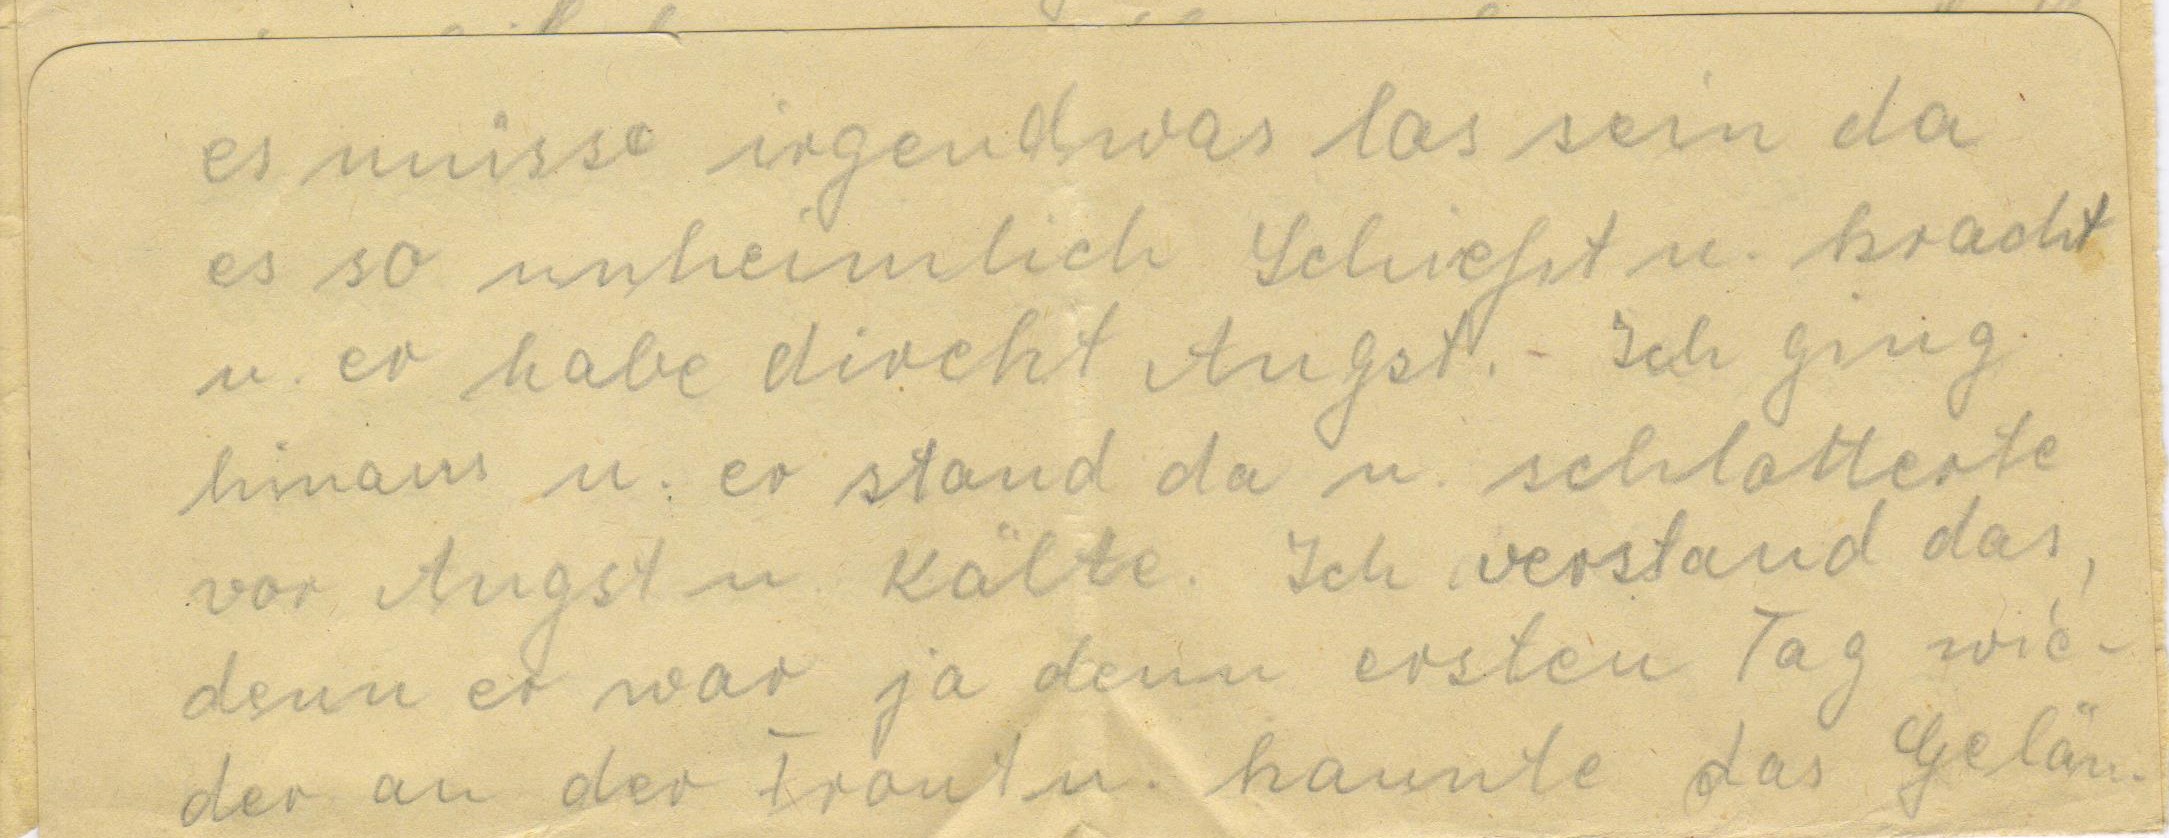 es müsse irgendwas los sein da
es so unheimlich Schießt u. kracht
u. er habe direkt Angst. - Ich ging
hinaus u. er stand da u. schlotterte
vor Angst u. Kälte. Ich verstand das,
denn er war ja denn ersten Tag wie-
der an der Front u. kannte das Gelän-